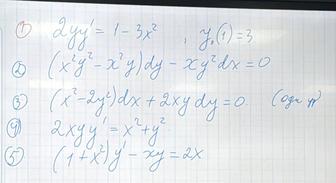 ① 2yy' = 1 - 3x², y₀(1) = 3
② (x²y² - x²y)dy - xy²dx = 0
③ (x² - 2y²)dx + 2xy dy = 0
④ 2xyy' = x² + y²
⑤ (1 + x²)y' - xy = 2x